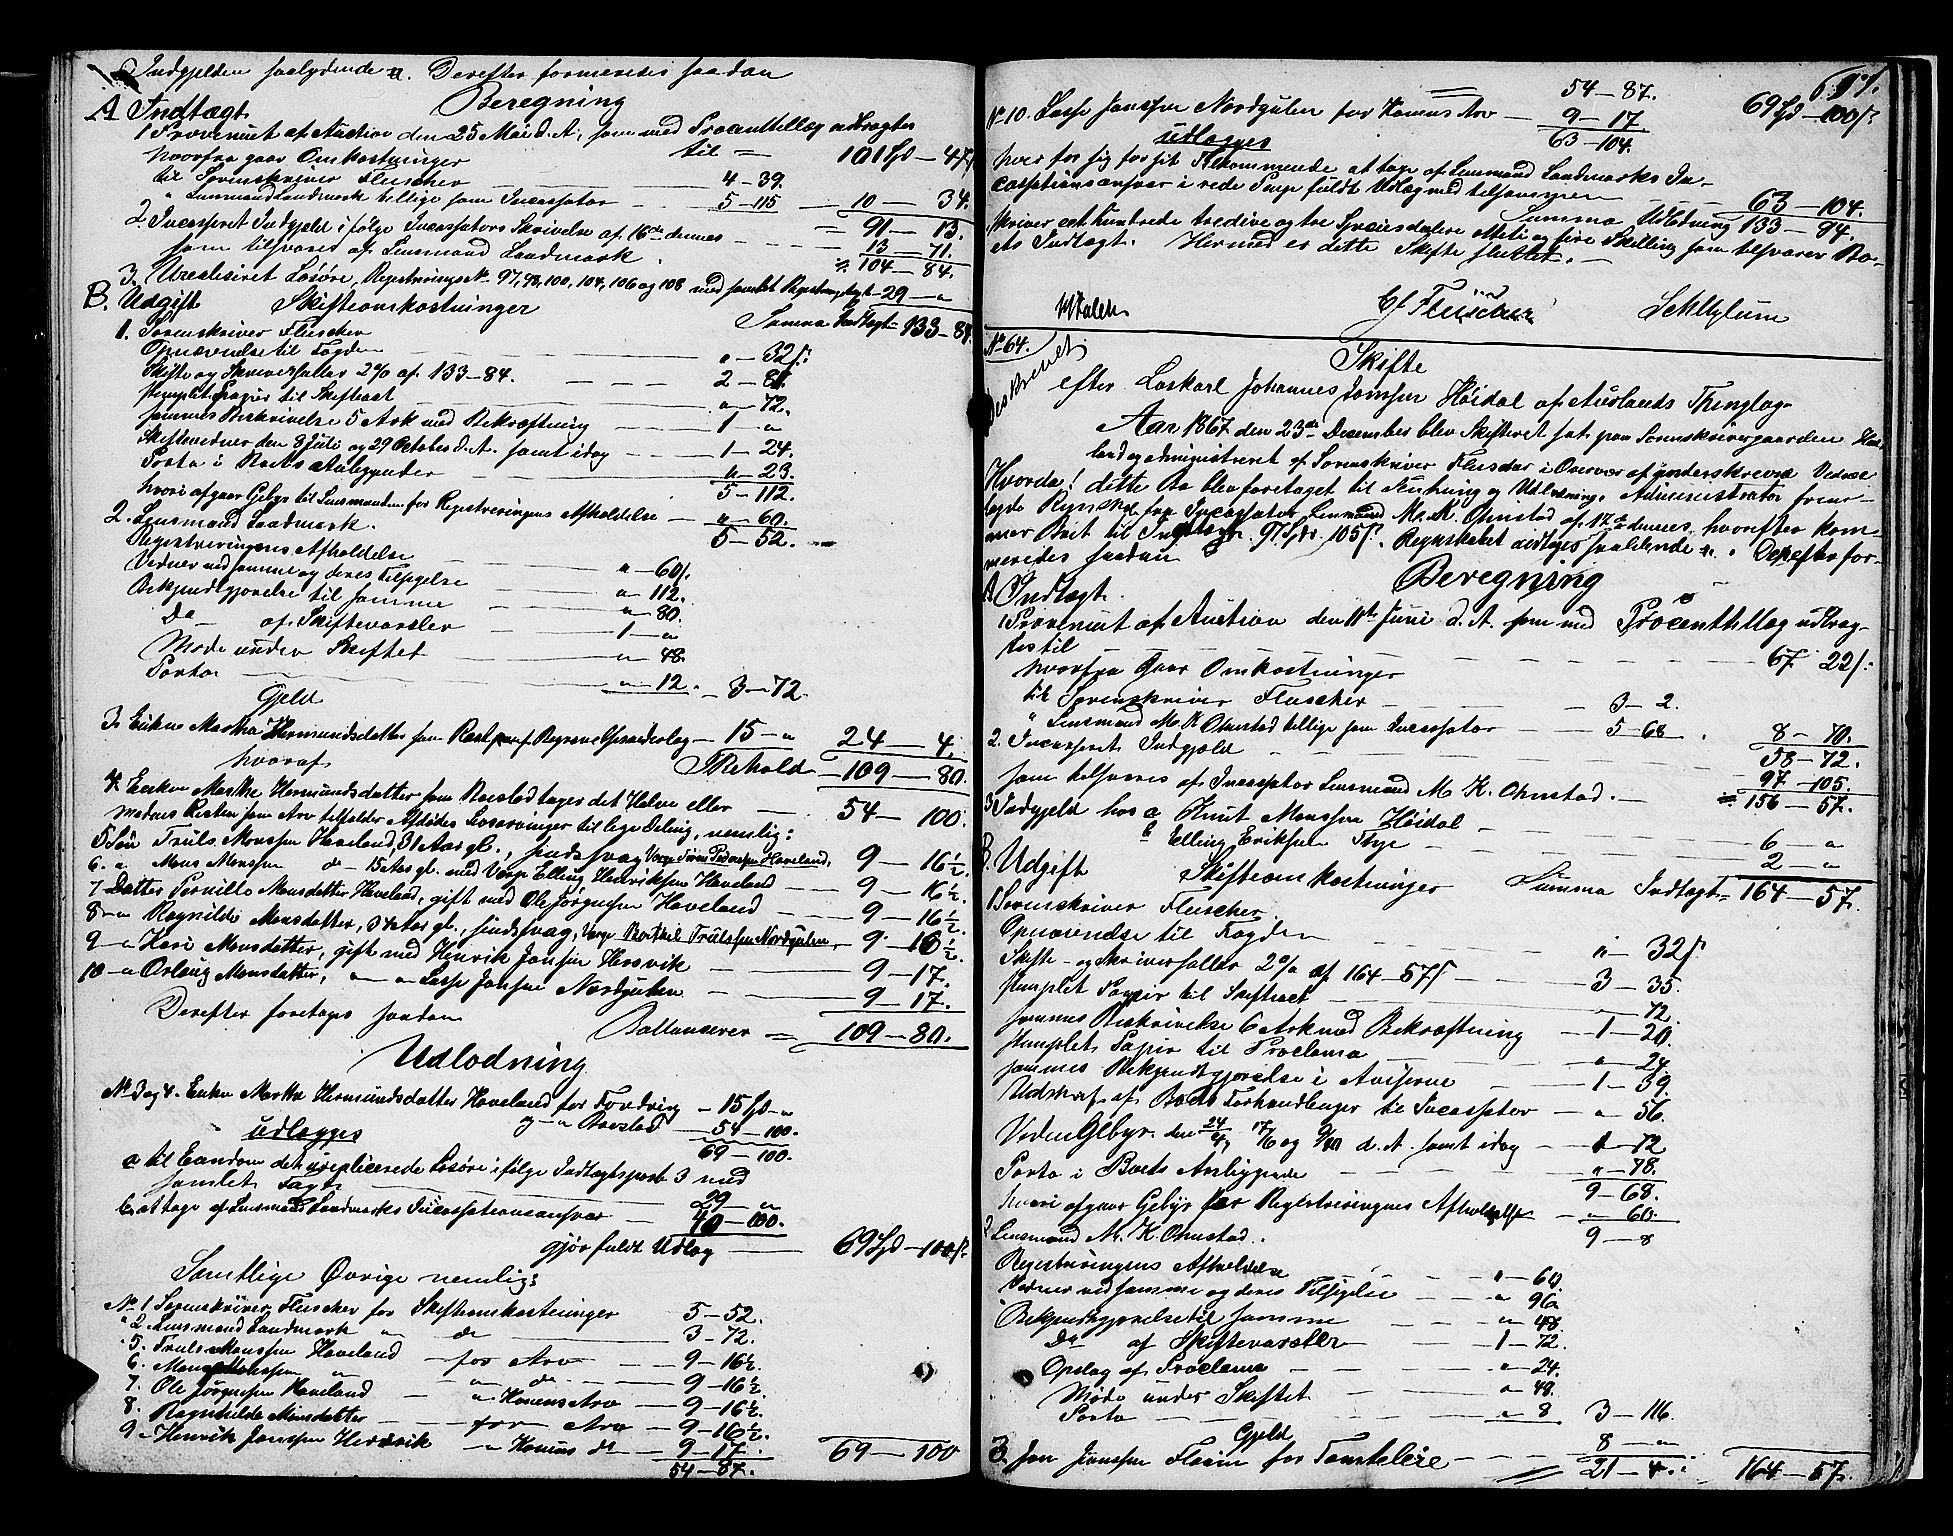 Indgjelden saalydende a. Derefter formeredes saadan
Beregning
A Indtægt.
1. Provenuet af Auction den 25 Mai d. A., som med Procenttillæg udbragtes
til = 101 Spd – 4 ß
hvorfra gaar Omkostninger
til Sorenskriver Fleischer — 4–39.
" Lensmand Landmark tillige som Incassator — 5–115 — 10 – 34.
= 91 – 13.
2. Incasseret Indgjeld ifølge Incassators Skrivelse af 16de dennes — 13 – 71.
som tilsvares af Lensmand Landmark. = 104 – 84.
3. Urealiseret Løsøre, Registrerings No 97, 98, 100, 104, 106 og 108 med samlet 29 – "
Summa Indtægt 133 – 84
B. Udgift Skifteomkostninger
1. Sorenskriver Fleischer
Opnævnelse til Fogden — " – 32 ß
Skifte og Skriversaller 2 % af 133–84. — 2 – 81
Stemplet Papir til Skifteact — " – 72.
sammes Beskrivelse 5 Ark med Bekræftning — 1 – "
Skiftevidner den 8 Juli og 29 October d. A. samt idag — 1 – 24.
Porto i Boets Anliggender — " – 23.
5 – 112.
hvori afgaar Gebyr til Lensmanden for Registreringens Afholdelse — " – 60.
5 – 52.
2. Lensmand Landmark.
Registreringens Afholdelse — " – 60 ß
Vidner ved samme og deres Tilsigelse — " – 112.
Bekjendtgjørelse til samme — " – 80.
Do af Skiftevarsler — 1 – "
Møde under Skiftet — " – 48.
Porto — " – 12. – 3 – 72.
Gjeld
3. Enken Martha Hermundsdatter — 15 – " 24 – 4.
Behold – 109 – 80.
hvoraf
4. Enken Marthe Hermundsdatter som Boeslod tager det Halve eller — 54 – 100.
medens Resten som Arv tilfalder Afdødes Livsarvinger til lige Deling, nemlig:
5. Søn Truls Monssen Haveland, 31 Aar gl., sindssvag 9 – 16½
6. " Mons Monssen do 15 Aar gl. med Verge Elling Henriksen Haveland — 9 – 16½.
7. Datter Pernille Monsdatter Haveland, gift med Ole Jørgensen Haveland — 9 – 16½
8 – " Ragnilde Monsdatter, 34 Aar gl., sindssvag, Verge Berthel Trulssen Nordgulen 9 – 16½.
9 – " Kari Monsdatter, gift med Henrik Jansen Hersvik — 9 – 17.
10 – " Orlaug Monsdatter, " – " Lasse Jansen Nordgulen — 9 – 17.
Ballancerer = 109 – 80.
Derefter foretages saadan
Udlodning
No 3 og 4. Enken Marthe Hermundsdatter Haveland for Fordring – 15 Spd – "
og – " Boeslod — 54 – 100.
69 – 100.
udlægges
a til Eiendom det Løsøre ifølge Indtægtspost 3 med
samlet Taxt — 29 – "
b. at tage af Lensmand Landmarks Incassationsansvar — 40 – 100.
gjør fuldt Udlæg — 69 Spd – 100 ß
Samtlige Øvrige nemlig:
No 1 Sorenskriver Fleischer for Skifteomkostninger 5 – 52.
" 2. Lensmand Landmark " do 3 – 72.
5. Truls Monssen Haveland – for Arv — 9 – 16½.
6. Mons Monssen " – " do — 9 – 16½.
7. Ole Jørgensen Haveland – " Konens Arv — 9 – 16½.
8. Ragnhilde Monsdatter — for Arv — 9 – 16½.
9 – Henrik Janssen Hersvik – " Konens do — 9 – 17.
54 – 87. 69 – 100
617.
54 – 87. 69 Spd – 100 ß
No 10. Lasse Janssen Nordgulen for Konens Arv — 9 – 17
63 – 104.
udlægges
hver for sig for sit Tilkommende at tage af Lensmand Landmarks In-
cassationsansvar i rede Penge fuldt Udlæg med tilsammen — 63 – 104.
Summa Udlodning 133 – 84.
skriver et Hundrede tredive og tre Speciesdalere otteti og fire Skilling som tilsvarer Bo-
ets Indtægt. Hermed er dette Skifte sluttet. —
Cf Fleischer
No 64.
Beskrevet
Skifte
efter Løskarl Johannes Jonssen Høidal af Aurlands Thinglag –
Aar 1867 den 23de December blev Skifteret sat paa Sorenskrivergaarden
og administreret af Sorenskriver Fleischer i Overvær af underskrevne Vidner
Hvorda! dette Bo blev foretaget til Slutning og Udlodning. Administrator frem-
lagde Regnskab fra Incassator Lensmand M. K. Ohnstad af 17de dennes, hvorefter kom-
mer Boet til Indtægt 97 Spd. 105 ß. Regnskabet indtages saalydende a. Derefter for-
meredes saadan
Beregning
A Indtægt.
1 Provenuet af Auction den 11te Juni d. A. som med Procenttillæg udbrag-
tes til — 67 22 ß
hvorfra gaar Omkostninger
til Sorenskriver Fleischer — 3 – 2.
" Lensmand M. K. Ohnstad tillige som Incassator — 5 – 68. 8 – 70.
58 – 72.
2. Incasseret Indgjeld — 97 – 105.
som tilsvares af Incassator Lensmand M. K. Ohnstad. — = 156 – 57.
3. Indgjeld hos a Knut Monssen Høidal — 6 "
b Elling Eriksen Thye — 2 – "
Summa Indtægt = 164 – 57.
B. Udgift Skifteomkostninger
1 Sorenskriver Fleischer.
Opnævnelse til Fogden — " – 32 ß
Skifte – og Skriversaller 2 % af 164 – 57 ß — 3 – 35.
stemplet Papir til Skifteact — – 72.
sammes Beskrivelse 6 Ark med Bekræftning – 1 – 20.
stemplet Papir til Proclama — " – 24
sammes Bekjendtgjørelse i Aviserne — 1 – 39.
Udskrift af Boets Forhandlinger til Incassator — " – 56.
Vidne Gebyr. den 24/4, 17/6 og 9/10 d. A. samt idag — 1 – 72
Porto i Boets Anliggende — " – 78.
9 – 68.
hvori afgaar Gebyr for Registreringens Afholdelse — " 60.
9 – 8
2 Lensmand M. K. Ohnstad.
Registreringens Afholdelse — " – 60.
Vidner ved samme og deres Tilsigelse — " 96
Bekjendtgjørelse til samme — " – 48.
Do af Skiftevarsler — 1 – 72.
Opslag af Proclama — " – 24.
Møde under Skiftet — " – 48.
Porto — " 8 3 – 116.
Gjeld
3. Jon Jonssen for — 8 – "
21 – 4. 164 – 57.